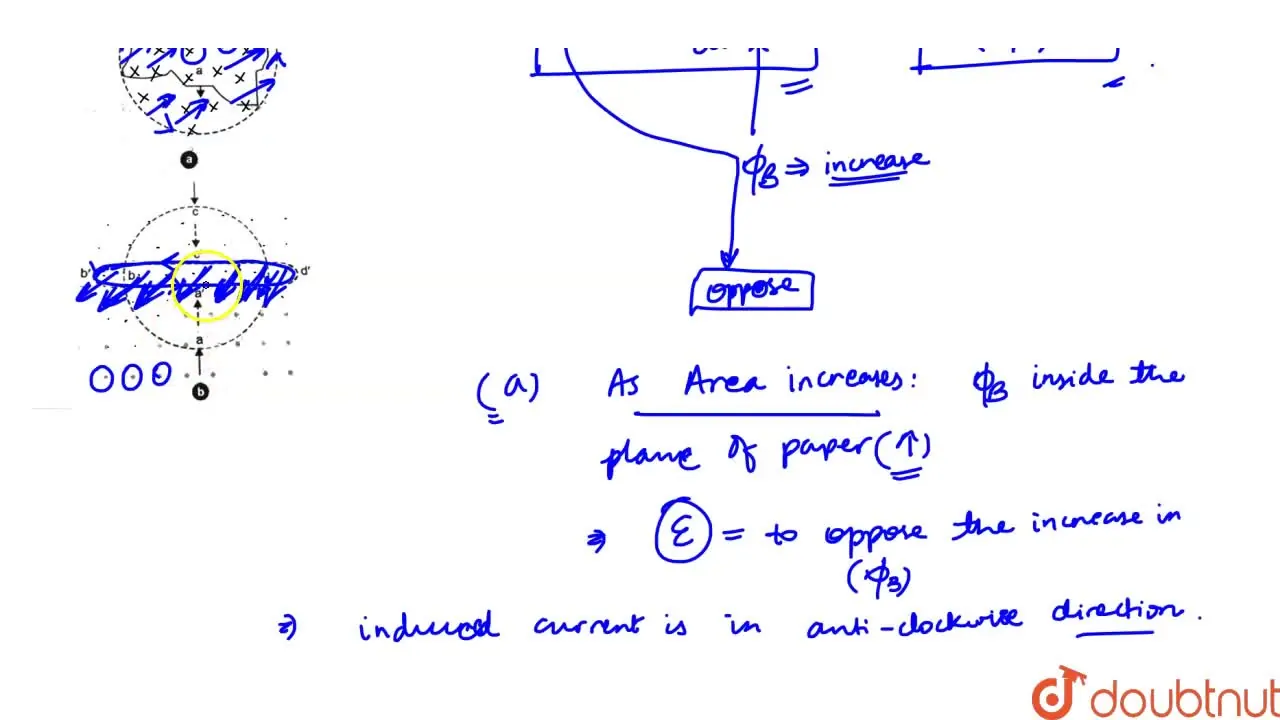 a
a
c
c'
b'
b
d'
a'
a
b
ϕB ⇒ increase
oppose
(a) As Area increases: ϕB inside the
plane of paper (↑)
⇒ ε = to oppose the increase in
(ϕB)
⇒ induced current is in anti-clockwise direction.
doubtnut